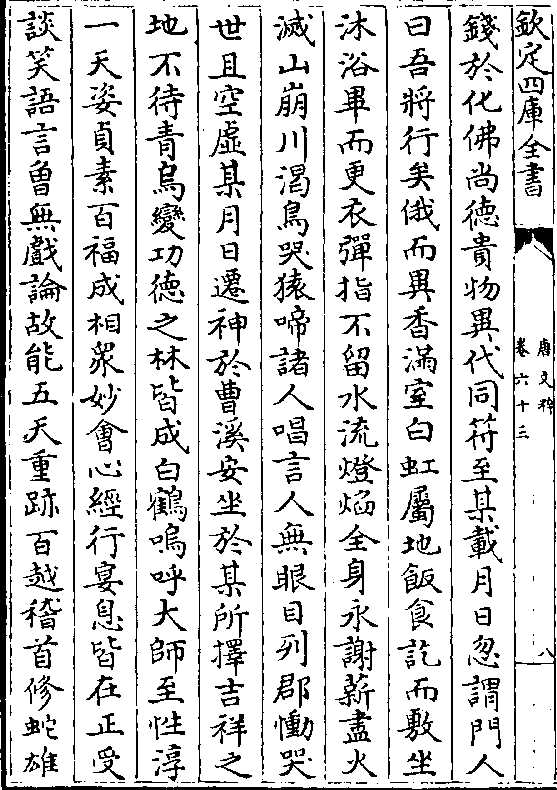 欽定四庫全書
唐文粹
卷六十三
八
錢於化佛尚德貴物異代同符至某載月日忽謂門人
曰吾將行矣俄而異香滿室白虹屬地飯食訖而敷坐
沐浴畢而更衣彈指不留水流燈焰全身永謝薪盡火
滅山崩川渴鳥哭猿啼諸人唱言人無眼目列郡慟哭
世且空虛某月日遷神於曹溪安坐於某所擇吉祥之
地不待青烏變功德之林皆成白鶴嗚呼大師至性淳
一天姿貞素百福成相衆妙會心經行宴息皆在正受
談笑語言曾無戲論故能五天重跡百越稽首修蛇雄